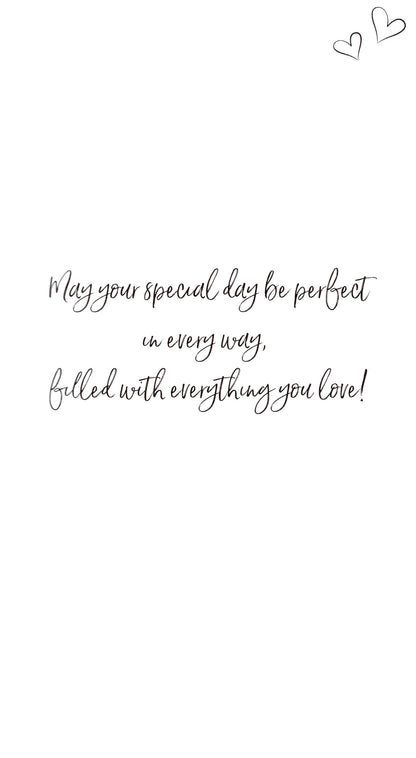 May your special day be perfect
in every way,
filled with everything you love!